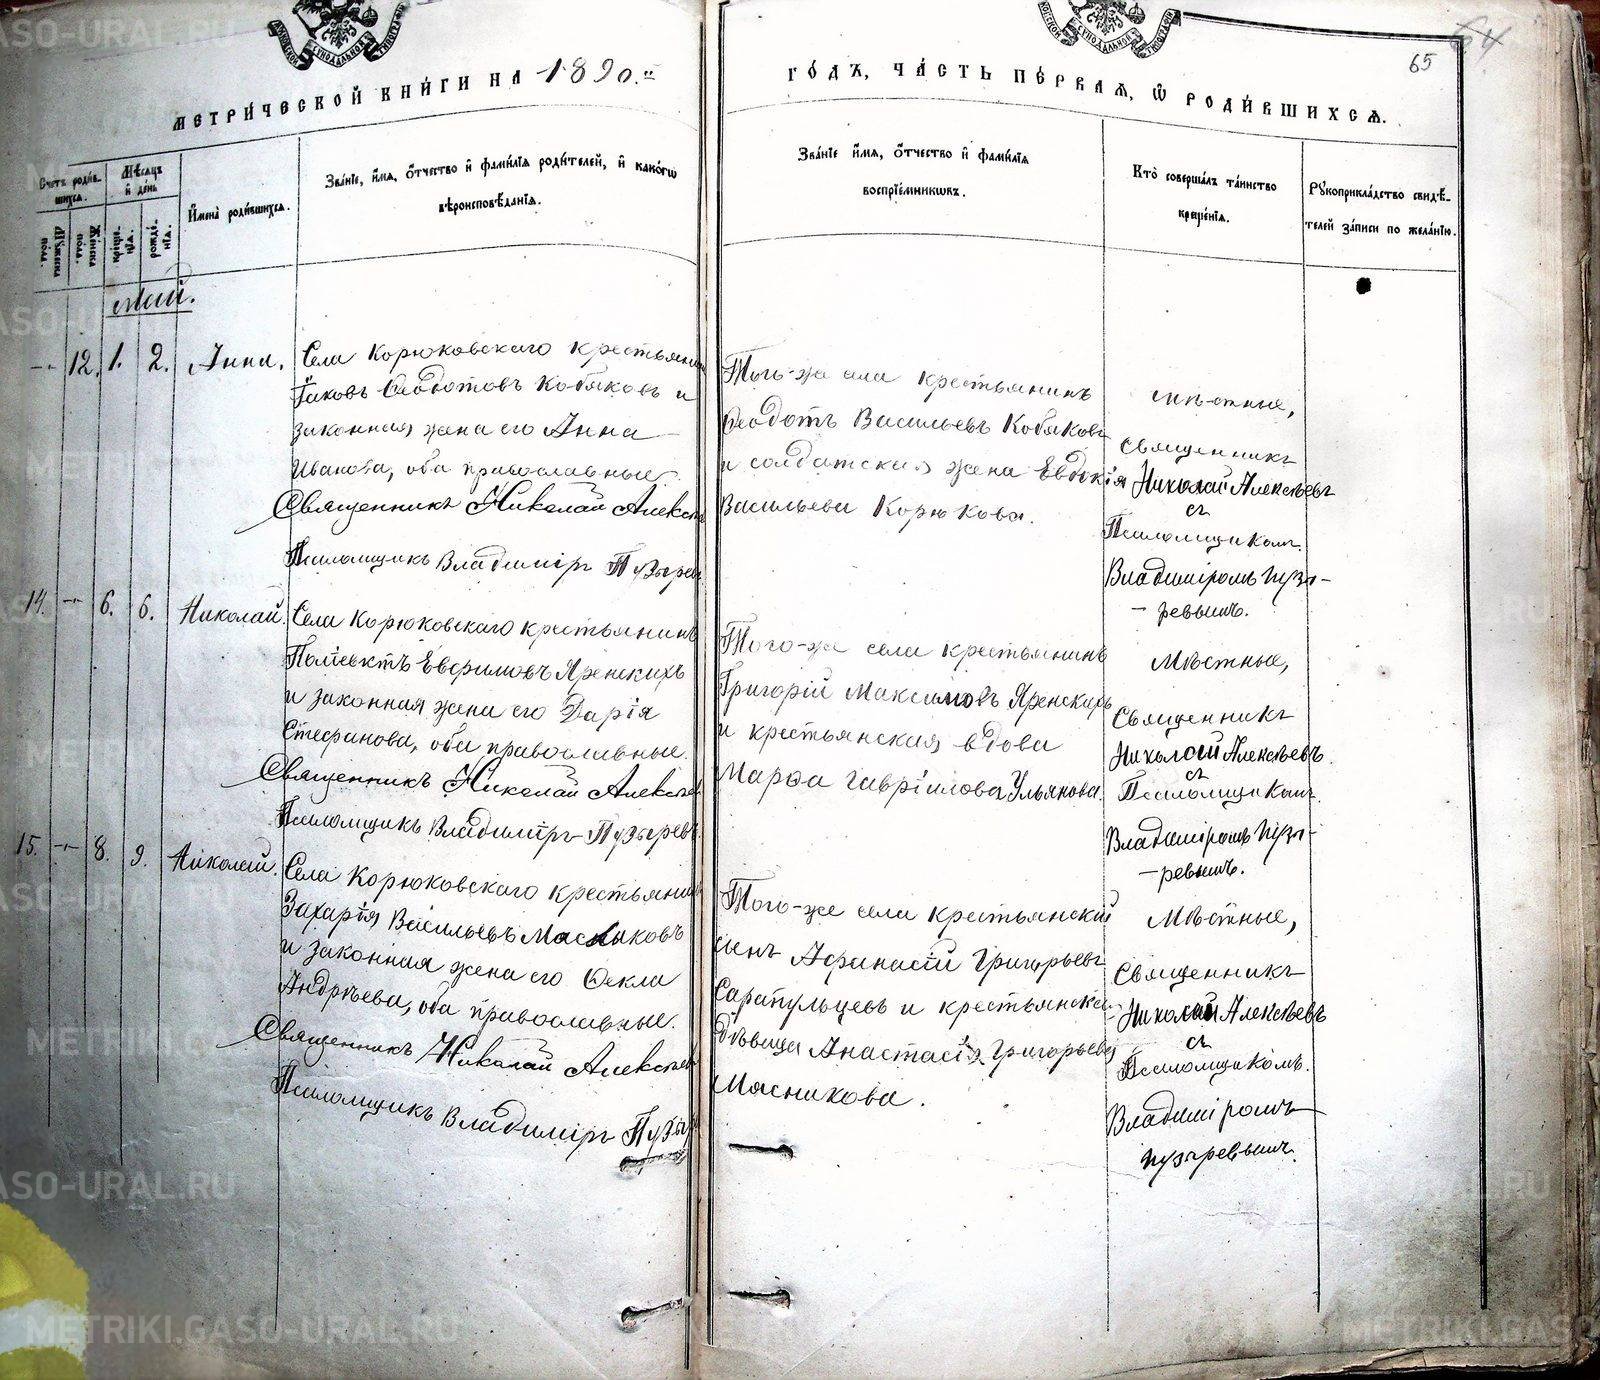 МЕТРИ́ЧЕСКОЙ КНИ́ГИ НА 1890.й
ГО́ДЪ, ЧА́СТЬ ПЕ́РВАѦ, Ѡ҆ РОДИ́ВШИХСѦ.
65
64
Счетъ роди́в-
шихсѧ.
Мѣ́сѧцъ
и҆ де́нь
Мꙋ́жеска
по́ла.
Же́нска
по́ла.
рожде́-
нїѧ.
креще́-
нїѧ.
И҆мена̀ роди́вшихсѧ.
Зва́нїе, и҆́мѧ, ѻ҆́тчество и҆ фами́лїѧ роди́телей, и҆ како́гѡ
вѣроисповѣ́данїѧ.
Зва́нїе и҆́мѧ, ѻ҆́тчество и҆ фами́лїѧ
воспрїе́мникѡвъ.
Кто̀ соверша́лъ та́инство
креще́нїѧ.
Рꙋкоприкла́дство свидѣ́-
телей за́писи по жела́нїю.
Май.
-- 12. 1. 2. Анна.
Села Корюковскаго крестьянин
Іаковъ Ѳеодотовъ Кобяковъ и
законная жена его Анна
Иванова, оба православные.
Священникъ Николай Алексѣ
Псаломщикъ Владиміръ Пузырев
Того-же села крестьянинъ
Ѳеодотъ Васильевъ Кобяковъ
и солдатская жена Евдокія
Васильева Корюкова.
Мѣстные,
Священникъ
Николай Алексѣевъ
съ
Псаломщикомъ
Владиміромъ Пузы-
-ревымъ.
14. -- 6. 6. Николай.
Села Корюковскаго крестьянинъ
Поліевктъ Евфимовъ Яренскихъ
и законная жена его Дарія
Стефанова, оба православные.
Священникъ Николай Алексѣев
Псаломщикъ Владиміръ Пузыревъ
Того-же села крестьянинъ
Григорій Максимовъ Яренскихъ
и крестьянская вдова
Марѳа Гавріилова Ульянова.
Мѣстные,
Священникъ
Николай Алексѣевъ.
съ
Псаломщикомъ.
Владиміромъ Пузы-
-ревымъ.
15. -- 8. 9. Николай.
Села Корюковскаго крестьянин
Захарія Васильевъ Масныковъ
и законная жена его Ѳекла
Андреева, оба православные.
Священникъ Николай Алексѣев
Псаломщикъ Владиміръ Пузыр
Того-же села крестьянскій
сынъ Афанасій Григорьевъ
Сарапульцевъ и крестьянская
дѣвица Анастасія Григорьева
Масникова.
Мѣстные,
Священникъ
Николай Алексѣевъ
съ
Псаломщикомъ.
Владиміромъ
Пузыревымъ.
METRIKI.GASO-URAL.RU